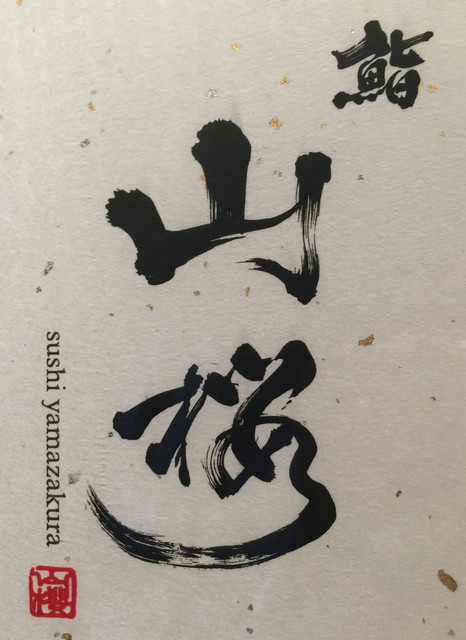 鮨
山桜
sushi yamazakura